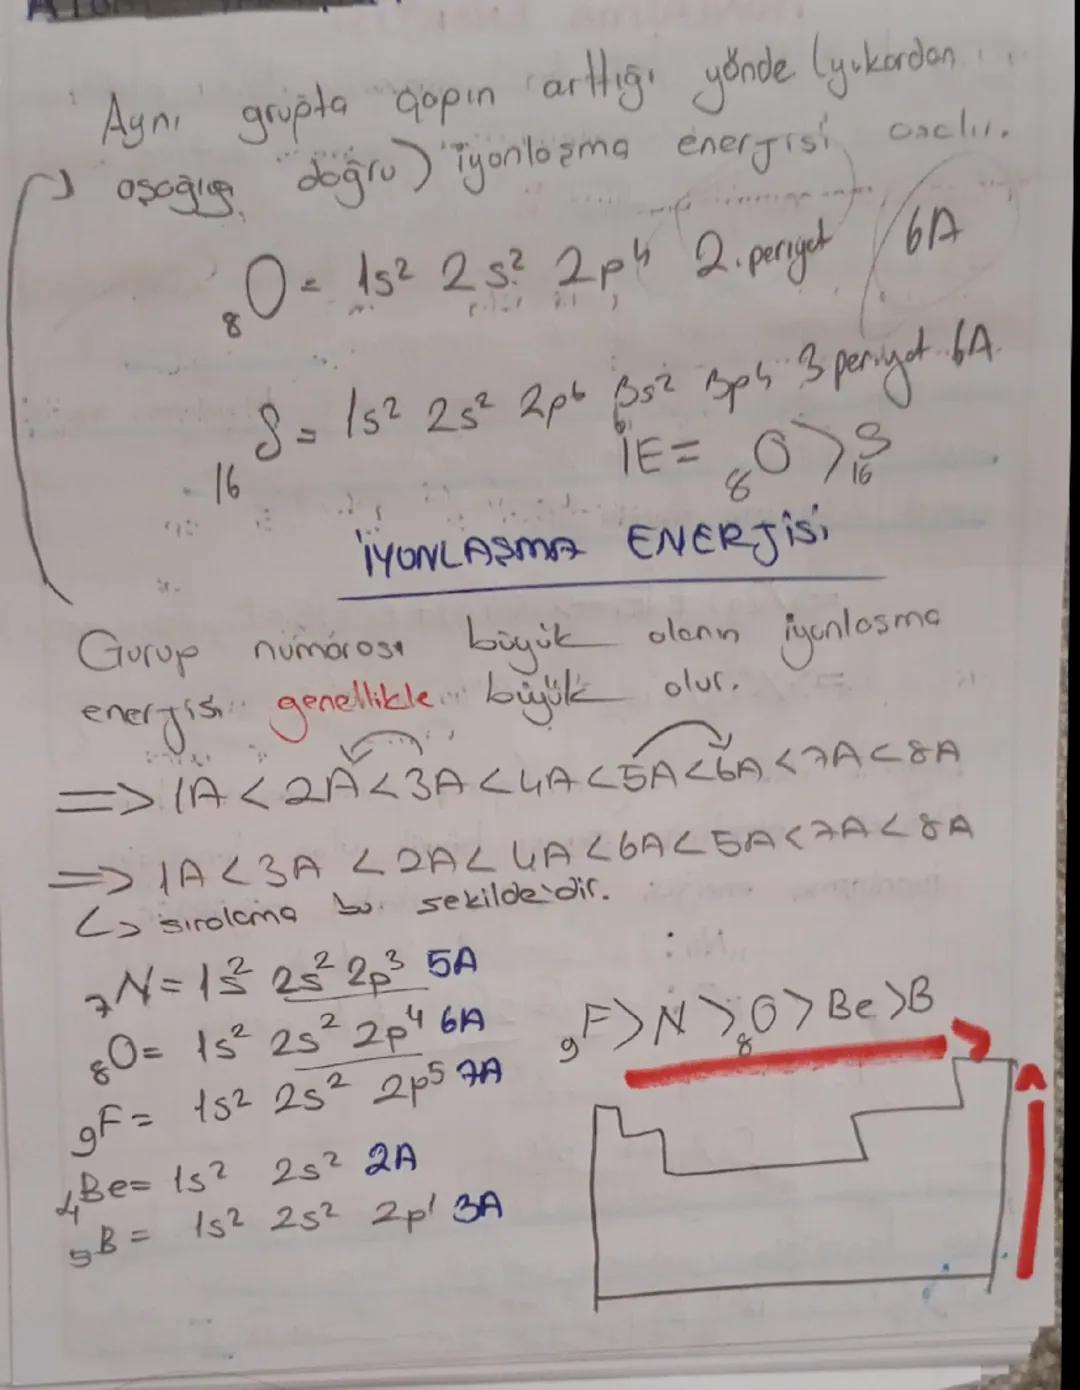 Aynı grupta çapın arttığı yönde (yukardan
aşağıya doğru) iyonlaşma enerjisi azalır.
₈O = 1s² 2s² 2p⁴ 2.periyot 6A
₁₆S = 1s² 2s² 2p⁶ 3s² 3p⁴ 3 periyot 6A
İE = ₈O > ₁₆S
İYONLAŞMA ENERJİSİ
Gurup numarası büyük olanın iyonlaşma
enerjisi genellikle büyük olur.
=> 1A < 2A < 3A < 4A < 5A < 6A < 7A < 8A
=> 1A < 3A < 2A < 4A < 6A < 5A < 7A < 8A
↳ sıralama bu şekildedir.
₇N = 1s² 2s² 2p³ 5A
₈O = 1s² 2s² 2p⁴ 6A
₉F > N > ₈O > Be > B
₉F = 1s² 2s² 2p⁵ 7A
₄Be = 1s² 2s² 2A
₅B = 1s² 2s² 2p¹ 3A